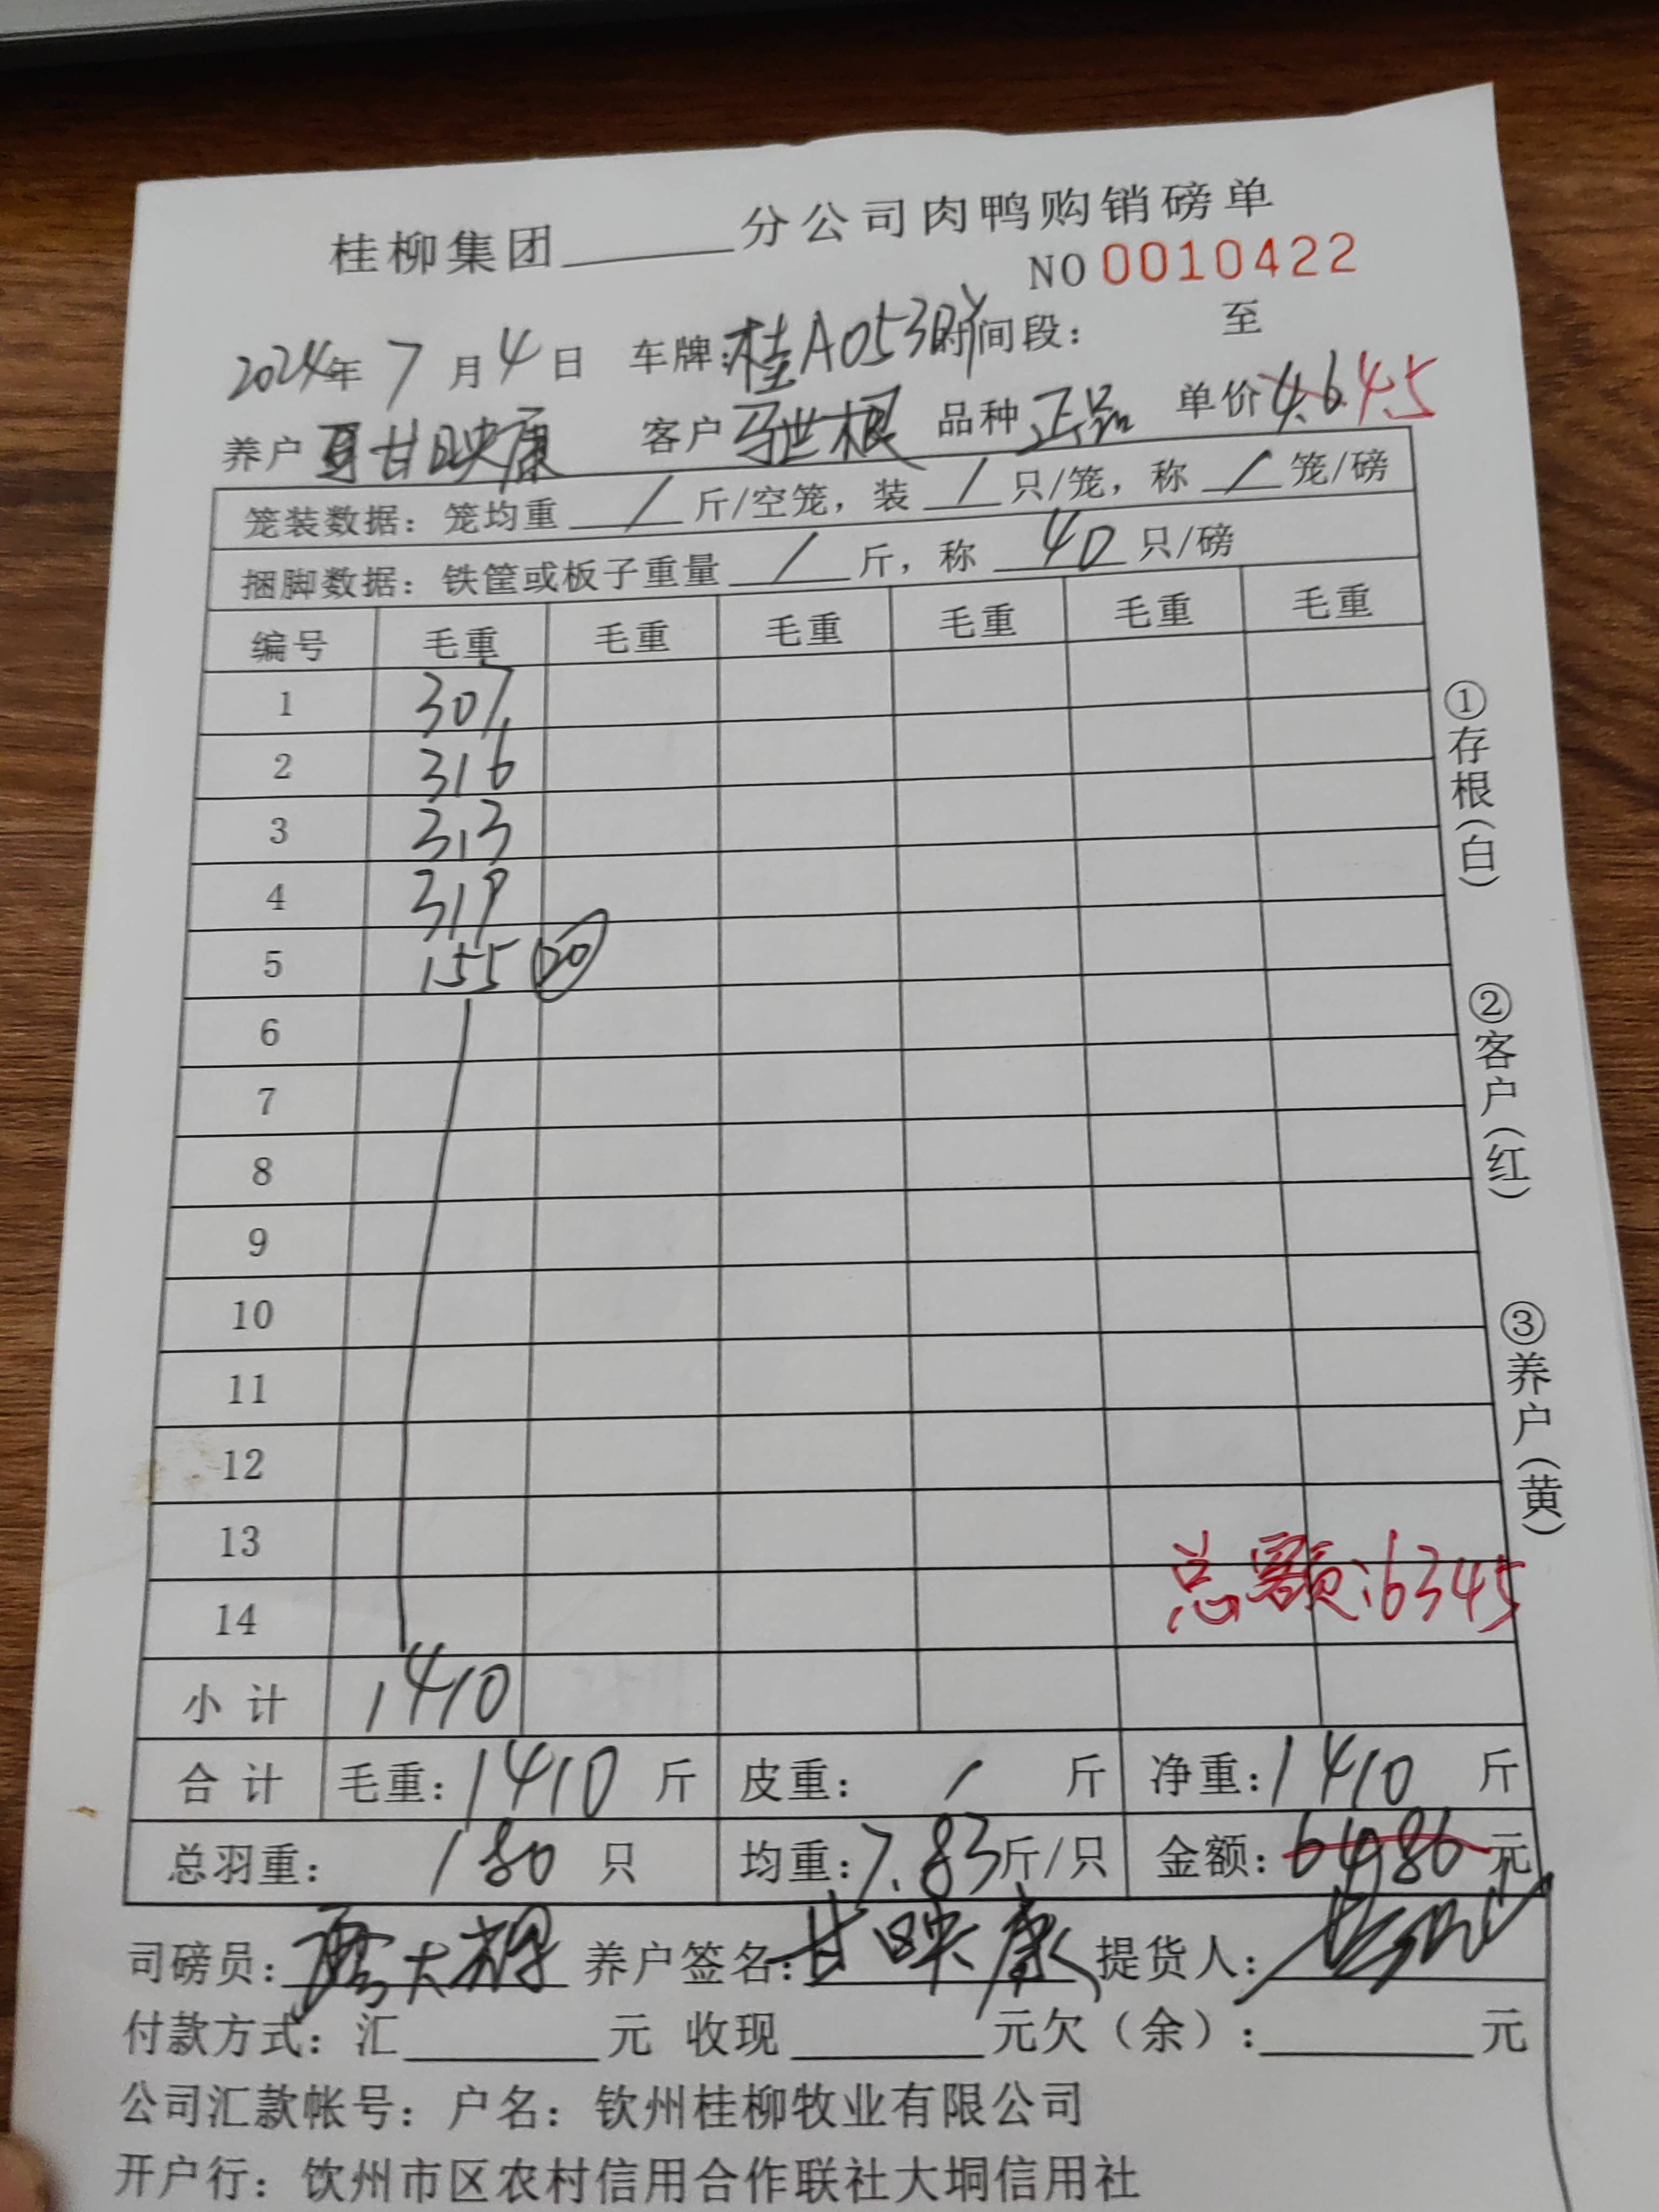 桂柳集团______分公司肉鸭购销磅单
NO 0010422
2024年 7月4日 车牌:桂A053 时间段： 至
养户 甘映康 客户 马世根 品种 正品 单价 4.6 4.5
笼装数据：笼均重 / 斤/空笼，装 / 只/笼，称 / 笼/磅
捆脚数据：铁筐或板子重量 / 斤，称 40 只/磅
编号 毛重 毛重 毛重 毛重 毛重 毛重
1 307
2 316
3 313
4 319
5 155 20
6
7
8
9
10
11
12
13
14
总额:6345
小计 1410
合计 毛重:1410 斤 皮重: / 斤 净重:1410 斤
总羽重: 180 只 均重:7.83斤/只 金额:6486元
司磅员: 养户签名:甘映康 提货人:
付款方式: 汇______元 收现______元欠（余）:______元
公司汇款帐号: 户名: 钦州桂柳牧业有限公司
开户行: 钦州市区农村信用合作联社大垌信用社
①存根(白)
②客户(红)
③养户(黄)